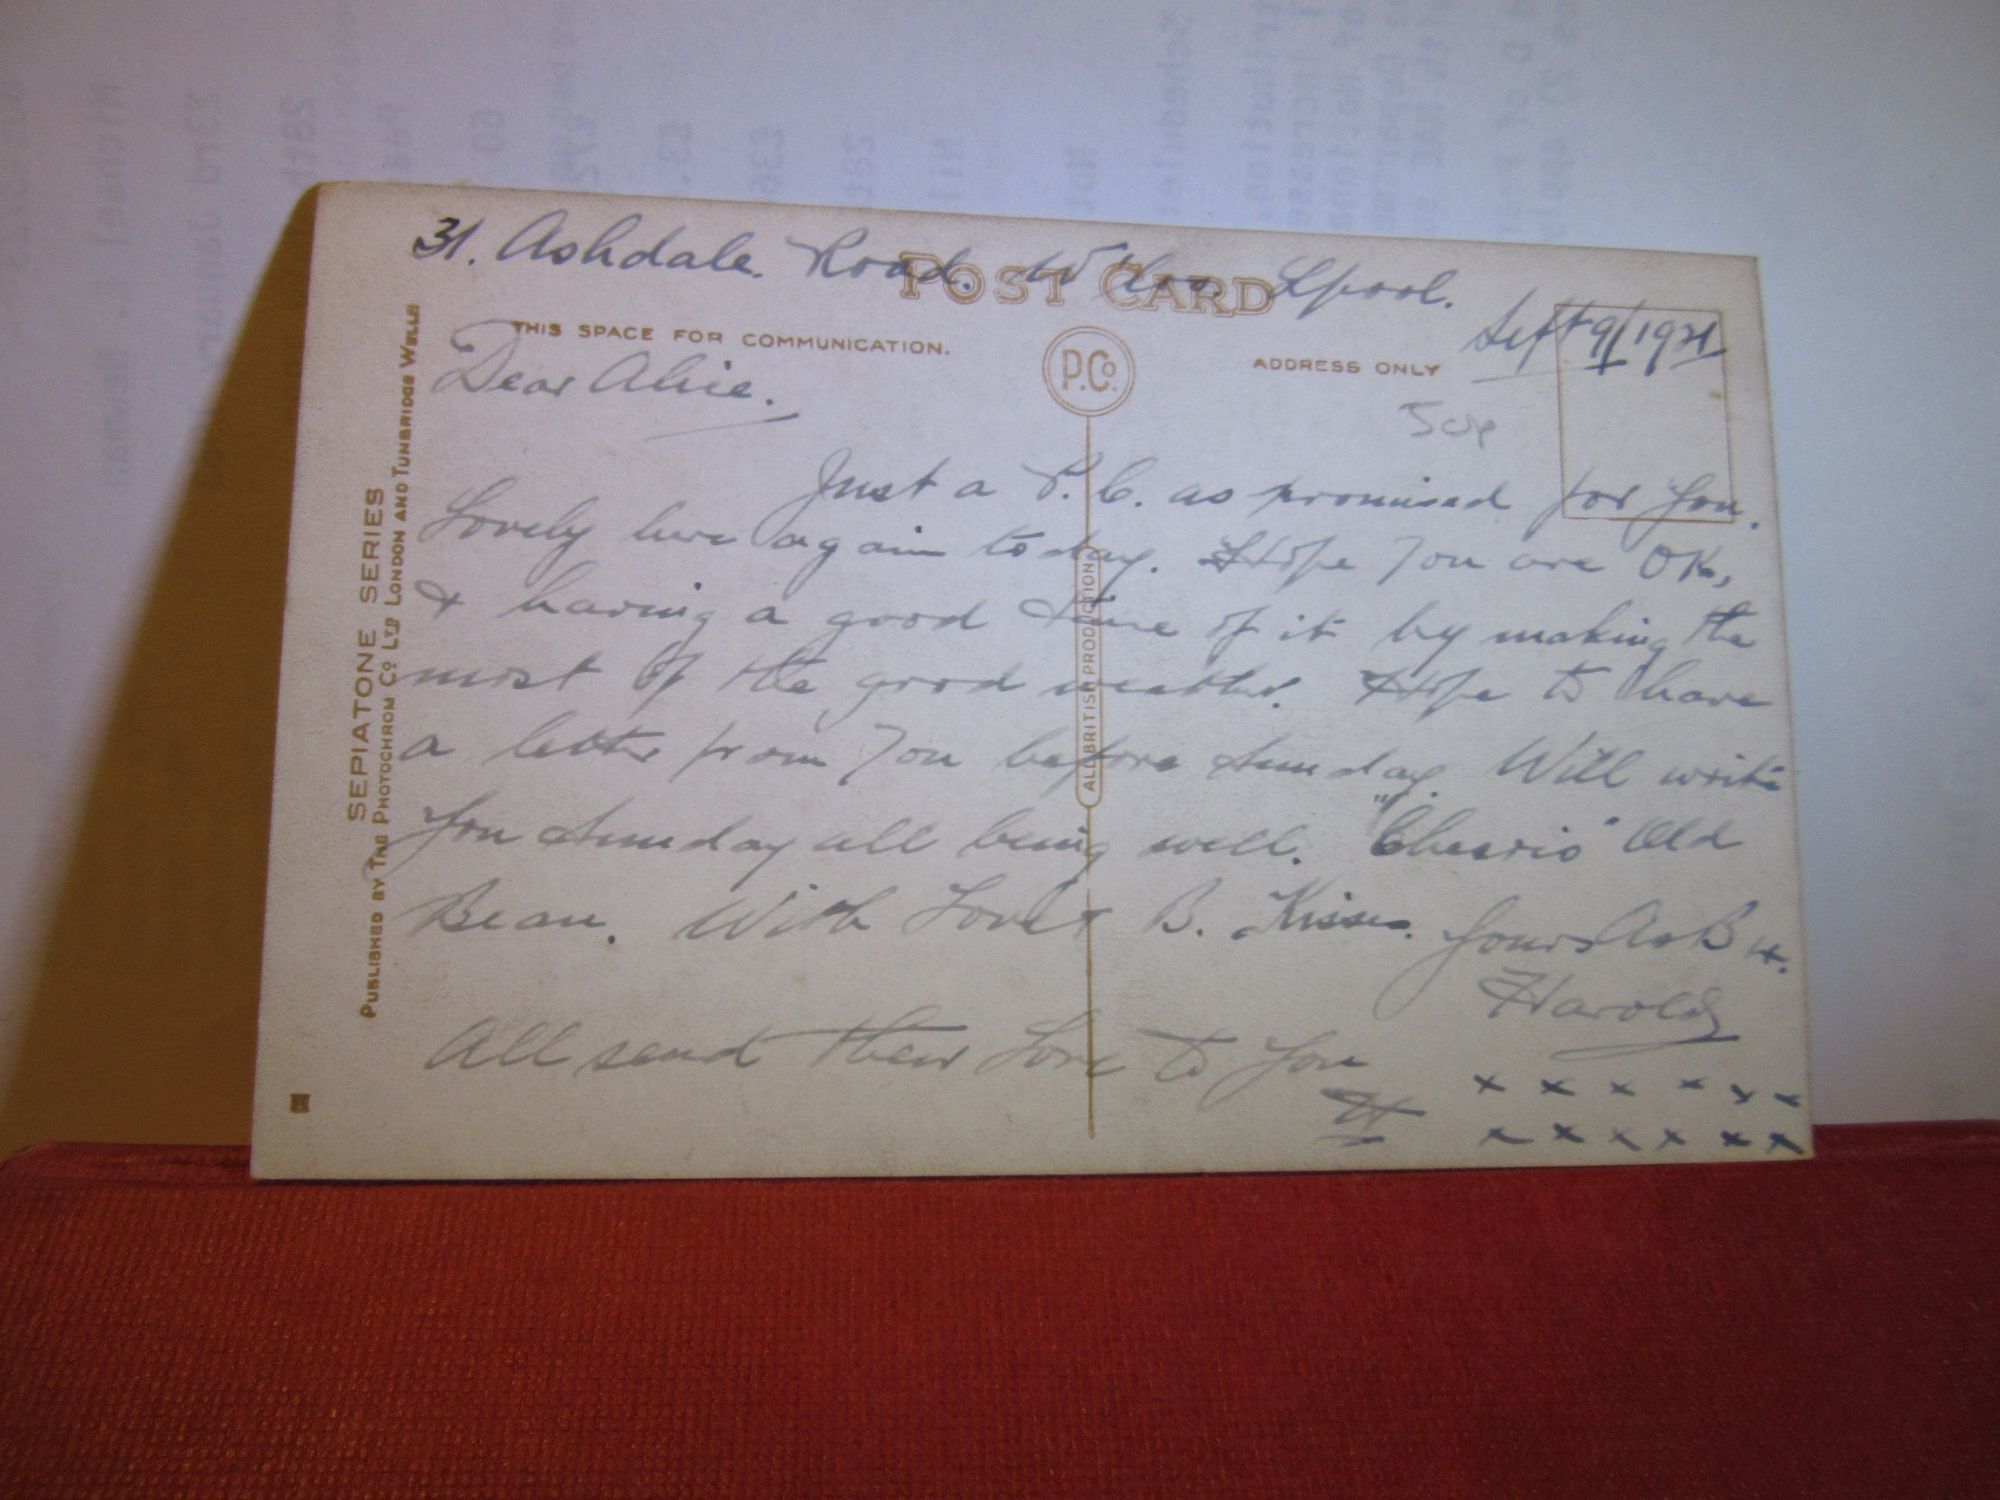 31. Ashdale. Road. W'loo. Lpool.
POST CARD
Sept 9/1921
THIS SPACE FOR COMMUNICATION.
P.Co.
ADDRESS ONLY
Dear Alice.
50p
Just a P.C. as promised for you.
Lovely here again today. Hope you are OK,
& having a good time of it by making the
most of the good weather. Hope to have
a letter from you before Sunday. Will write
you Sunday all being well. "Cheerio" Old
Bean. With Love & B. Kisses. Yours As B 4.
Harold
All send their Love to you
H
x x x x x x
x x x x x x
ALL BRITISH PRODUCTION
SEPIATONE SERIES
PUBLISHED BY THE PHOTOCHROM CO. LTD LONDON AND TUNBRIDGE WELLS